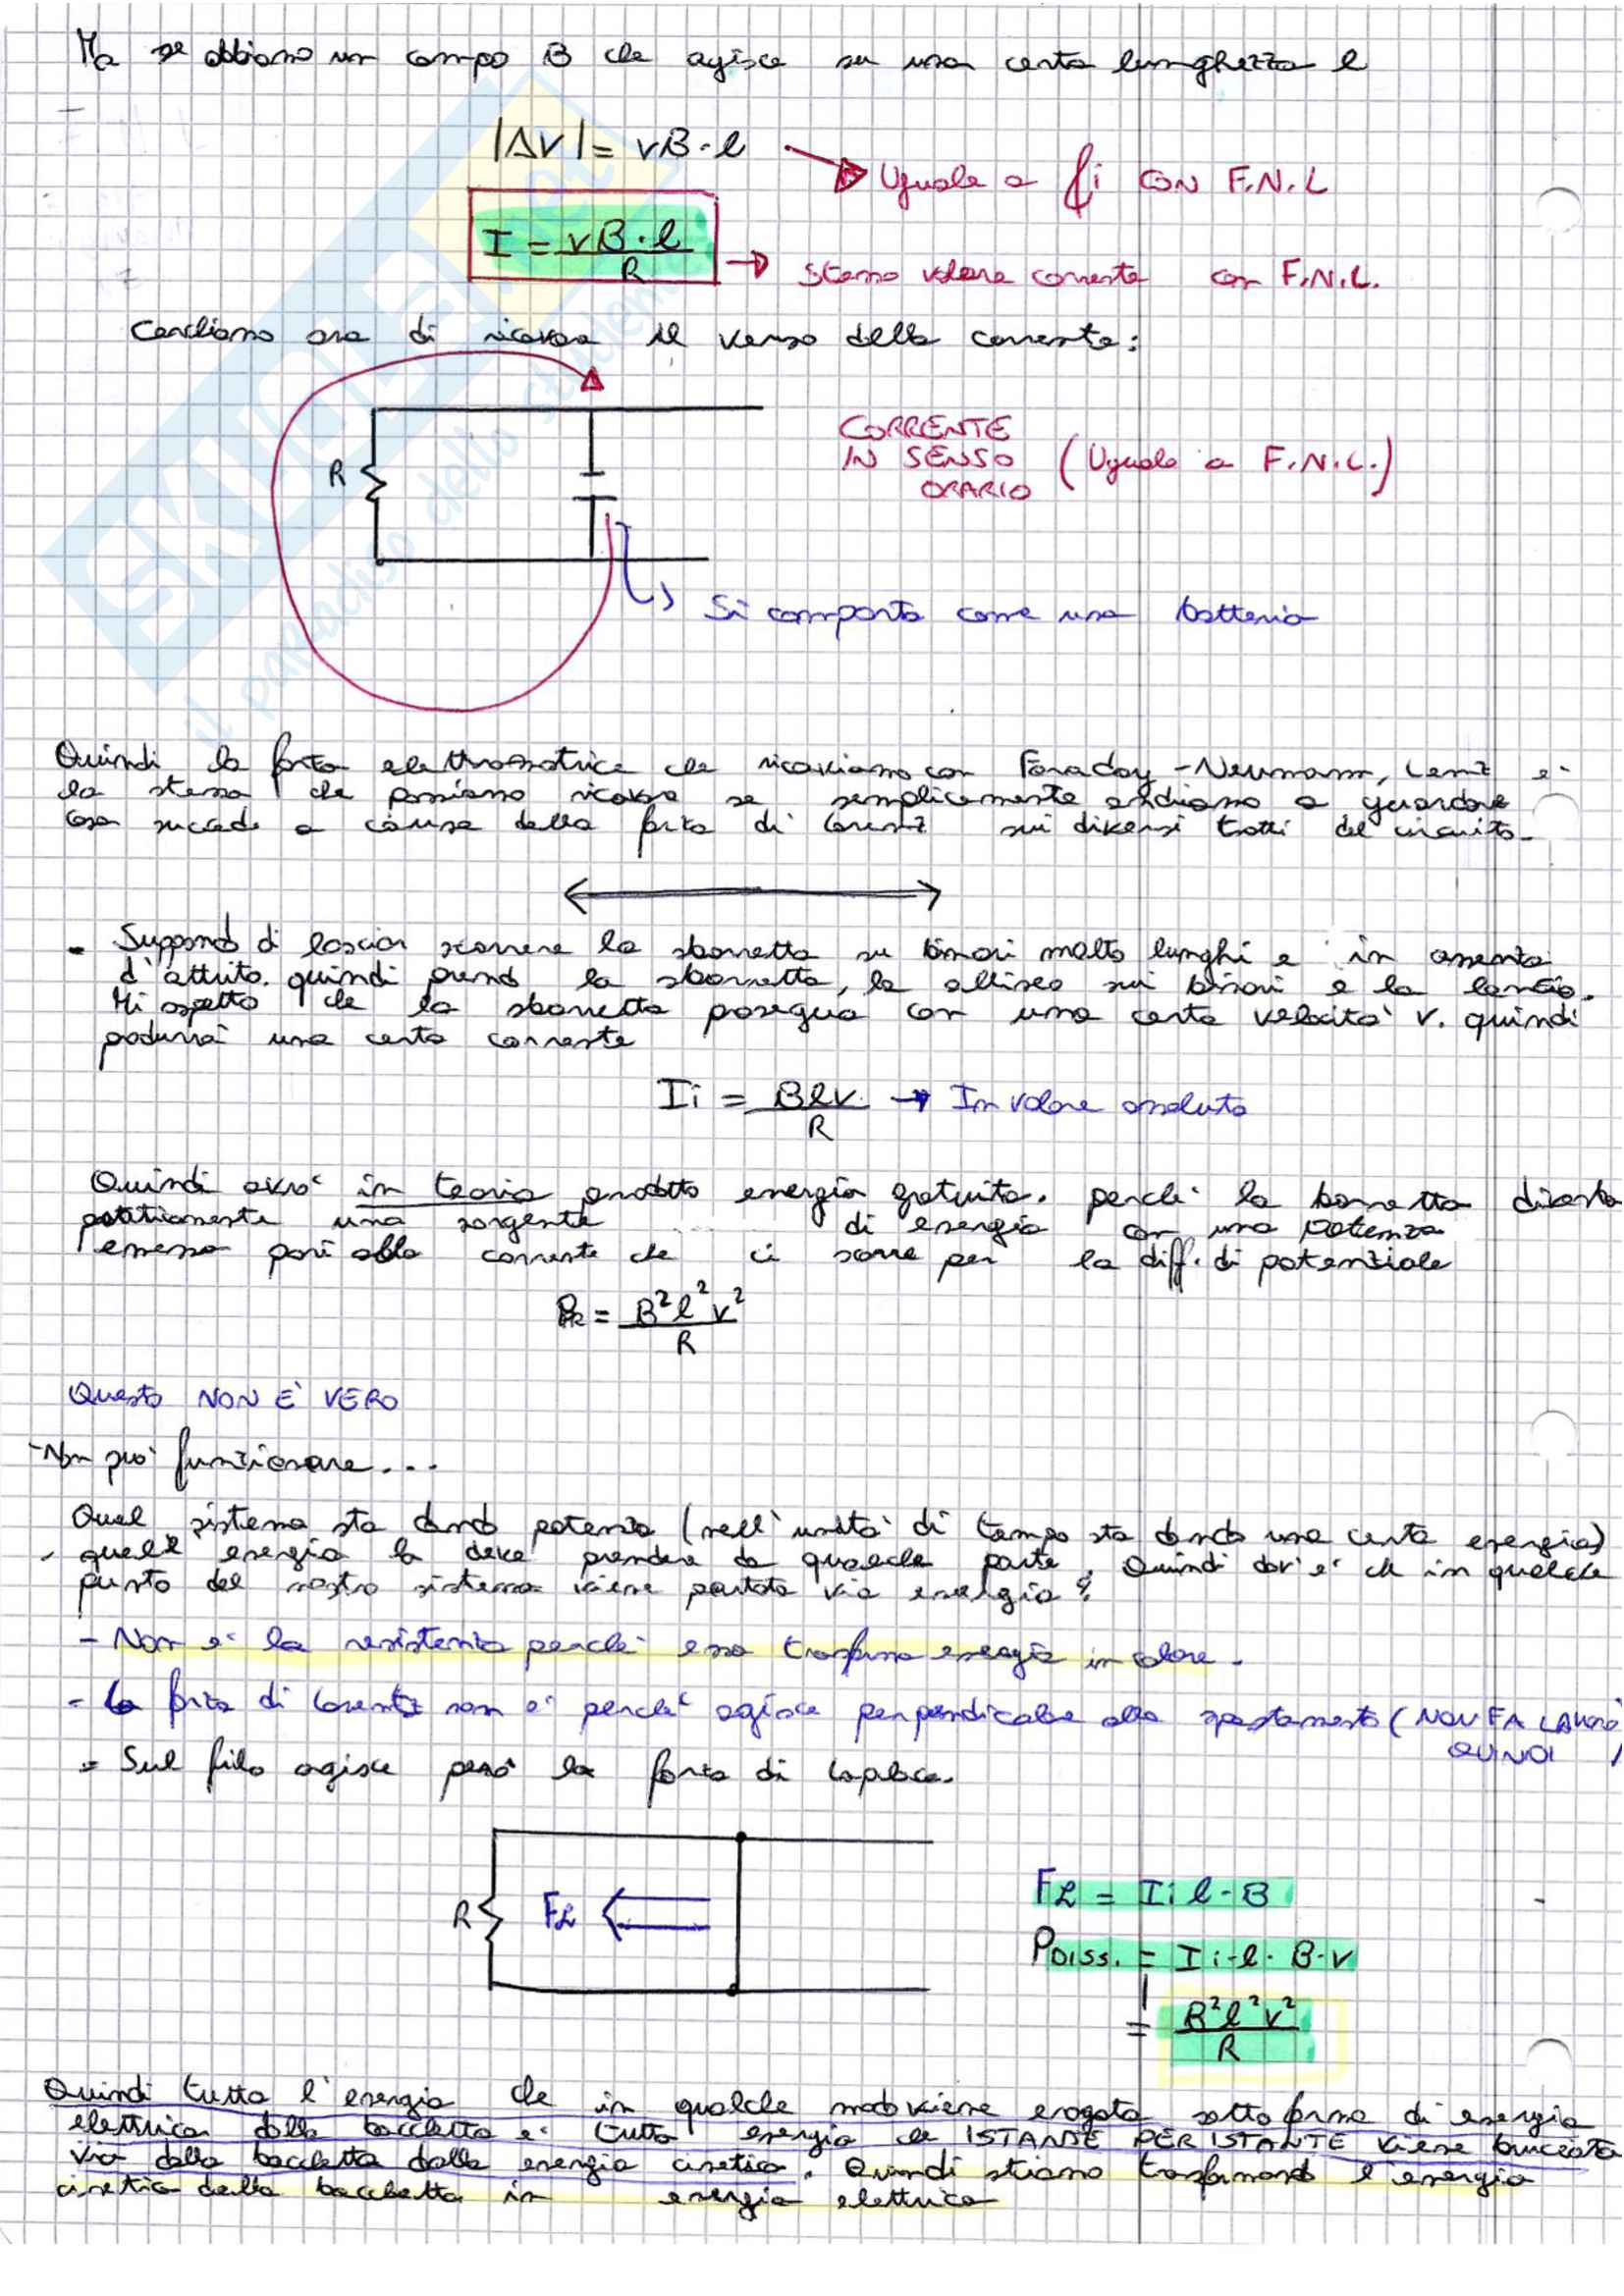 Ma se abbiamo un campo B che agisce su una certa lunghezza l
|ΔV| = vB·l
Uguale a fi CON F.N.L
I = vB·l / R
Stesso valore corrente con F.N.L.
Cerchiamo ora di ricavare il verso della corrente:
R
CORRENTE
IN SENSO (Uguale a F.N.L.)
ORARIO
Si comporta come una batteria
Quindi la forza elettromotrice che ricaviamo con Faraday-Neumann, Lenz e'
la stessa che possiamo ricavare se semplicemente andiamo a guardare
cosa succede a causa della forza di Lorentz sui diversi tratti del circuito.
- Supponendo di lasciar scorrere la sbarretta su binari molto lunghi e in assenza
d'attrito. quindi prendo la sbarretta, la allineo sui binari e la lancio.
Mi aspetto che la sbarretta prosegua con una certa velocità v. quindi
produrrà una certa corrente
Ii = Blv / R → In valore assoluto
Quindi avro' in teoria prodotto energia gratuita. perche' la barretta diventa
praticamente una sorgente di energia con una potenza
emessa pari alla corrente che ci scorre per la diff. di potenziale
PR = B²l²v² / R
Questo NON E' VERO
-Non puo' funzionare...
Qual sistema sta dando potenza (nell'unità di tempo sta dando una certa energia)
quell'energia la deve prendere da qualche parte. Quindi dov'e' che in qualche
punto del nostro sistema viene portata via energia?
- Non e' la resistenza perche' essa trasforma energia in calore.
- La forza di Lorentz non e' perche' agisce perpendicolare allo spostamento (NON FA LAVORO
QUINDI )
- Sul filo agisce pero' la forza di Laplace.
R
FL
FL = Ii l·B
PDISS. = Ii·l·B·v
= B²l²v² / R
Quindi tutta l'energia che in qualche modo viene erogata sotto forma di energia
elettrica dalla bacchetta e' tutta energia che ISTANTE PER ISTANTE viene bruciata
via dalla bacchetta dalla energia cinetica. Quindi stiamo trasformando l'energia
cinetica della bacchetta in energia elettrica
SKUOLA.net
il paradiso dello studente